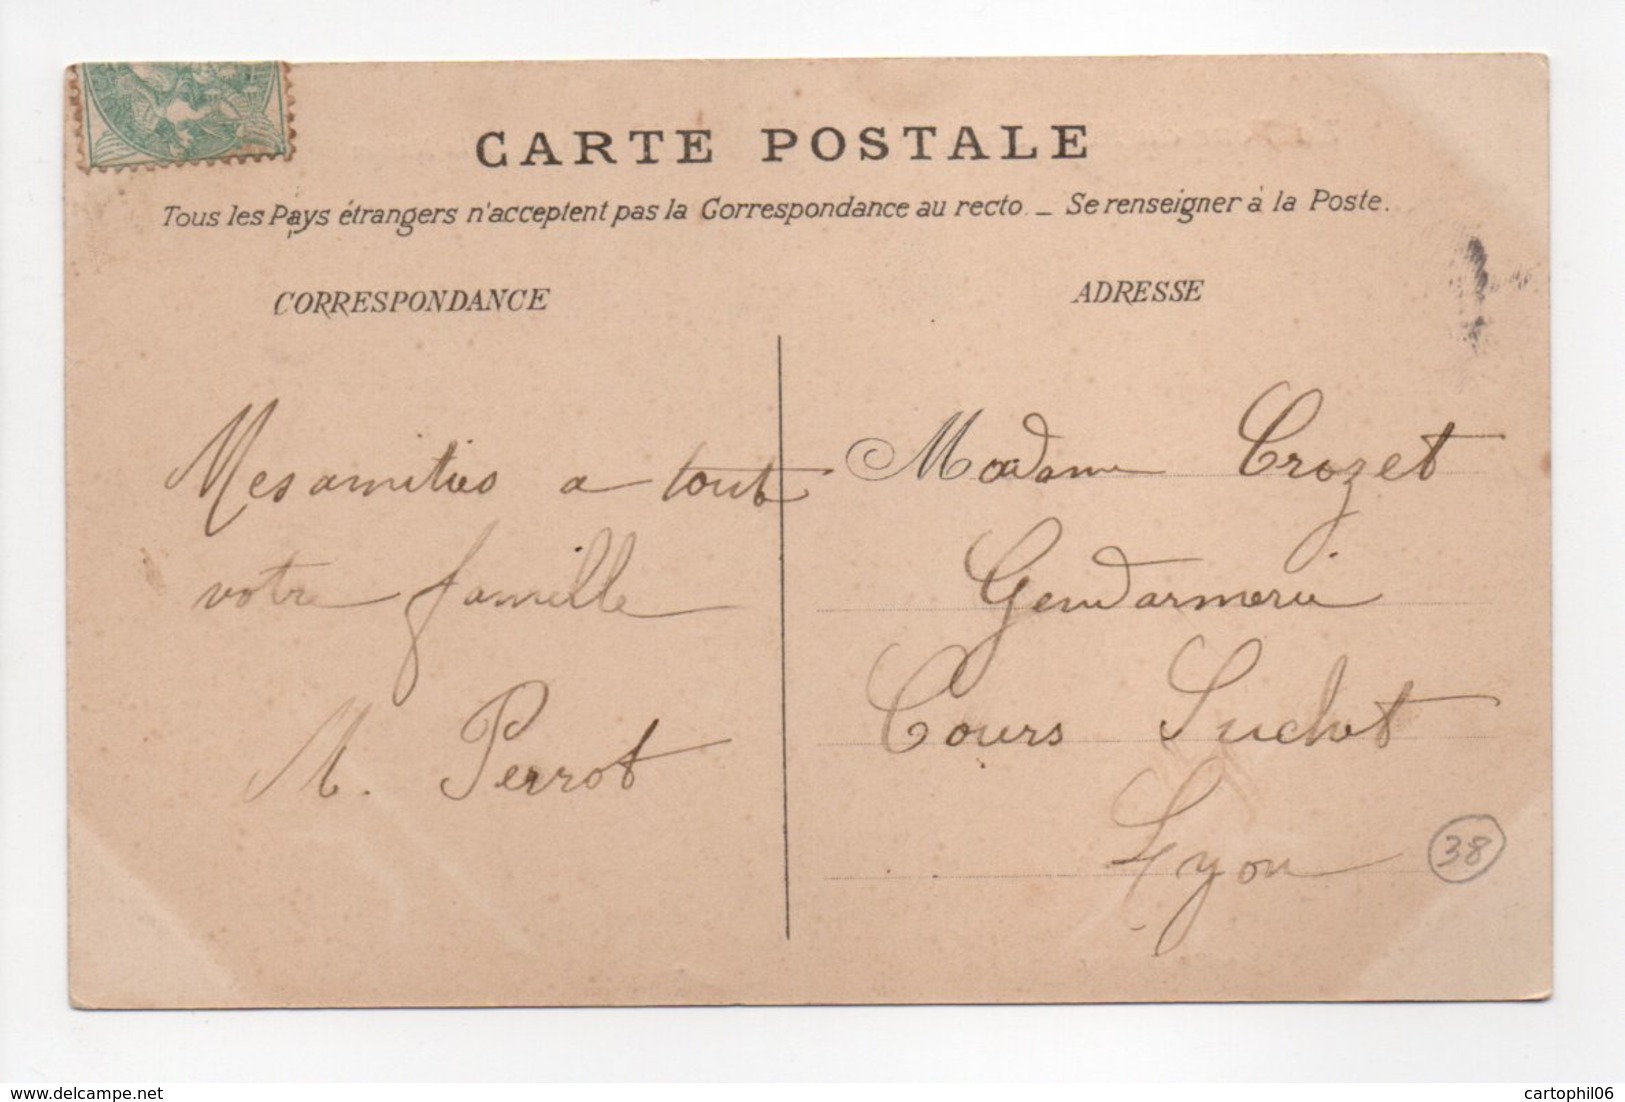 CARTE POSTALE
Tous les Pays étrangers n'acceptent pas la Correspondance au recto. _ Se renseigner à la Poste.
CORRESPONDANCE
Mes amitiés a tout
votre famille
M. Perrot
ADRESSE
Madame Crozet
Gendarmerie
Cours Suchet
Lyon
38
www.delcampe.net
cartophil06